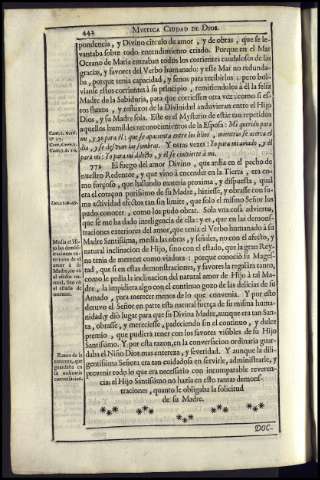 442 MYSTICA CIUDAD DE DIOS.
pondencia, y Divino circulo de amor, y de obras, que se le-
vantaba sobre todo entendimiento criado. Porque en el Mar
Oceano de Maria entraban todos los corrientes caudalosos de las
gracias, y favores del Verbo humanado: y este Mar no redunda-
ba, porque tenia capacidad, y senos para recibirlos; pero bol-
vianse estos corrientes à su principio, remitiendolos à èl la feliz
Madre de la Sabiduria, para que corriessen otra vez; como si es-
tos fluxos, y refluxos de la Divinidad anduvieran entre el Hijo
Dios, y su Madre sola. Este es el Mysterio de estàr tan repetidos
aquellos humildes reconocimientos de la Esposa: Mi querido para
mi, y yo para èl: que se apacienta entre los lirios, mientras se acerca el
dia, y se desvian las sombras. Y otras veces: Yo para mi amado, y èl
para mi: Yo para mi dilecto, y èl se convierte à mi.
773 El fuego del amor Divino, que ardia en el pecho de
nuestro Redentor, y que vino à encender en la Tierra, era co-
mo forçoso, que hallando materia proxima, y dispuesta, qual
era el coraçon purissimo de su Madre, hiziesse, y obrasse con su-
ma actividad efectos tan sin limite, que solo el mismo Señor los
pudo conocer, como los pudo obrar. Sola una cosa advierto,
que se me ha dado inteligencia de ella: y es, que en las demons-
traciones exteriores del amor, que tenia el Verbo humanado à su
Madre Santissima, media las obras, y señales, no con el afecto, y
natural inclinacion de Hijo, sino con el estado, que la gran Rey-
na tenia de merecer como viadora: porque conociò su Mages-
tad, que si en estas demonstraciones, y favores la regalàra tanto,
como le pedia la inclinacion del natural amor de Hijo à tal Ma-
dre, la impidiera algo con el continuo gozo de las delicias de su
Amado, para merecer menos de lo que convenia. Y por esto
detuvo el Señor en parte esta natural fuerça de su misma huma-
nidad, y diò lugar para que su Divina Madre, aunque era tan San-
ta, obrasse, y mereciesse, padeciendo sin el continuo, y dulce
premio, que pudiera tener con los favores visibles de su Hijo
Santissimo. Y por esta razon, en la conversacion ordinaria guar-
daba el Niño Dios mas entereza, y severidad. Y aunque la dili-
gentissima Señora era tan cuidadosa en servirle, administrarle, y
prevenir todo lo que era necessario con incomparable reveren-
cia; el Hijo Santissimo no hazia en esto tantas demons-
traciones, quanto le obligaba la solicitud
de su Madre.
DOC-